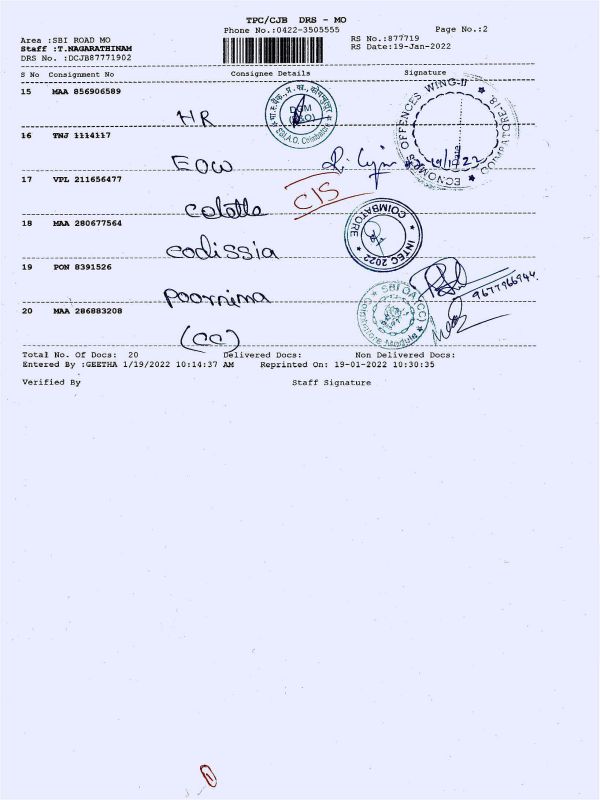 TPC/CJB DRS - MO
Phone No.:0422-3505555
Page No.:2
Area :SBI ROAD MO
RS No.:877719
Staff :T.NAGARATHINAM
RS Date:19-Jan-2022
DRS No. :DCJB87771902
S No Consignment No Consignee Details Signature
15 MAA 856906589
HR
ECNOMIC OFFENCES WING-II COIMBATORE-18
16 TNJ 1114117
EOW
17 VPL 211656477
CIS
18 MAA 280677564
codissia
COIMBATORE
INTEC 2022
19 PON 8391526
Poornima
9677966944
20 MAA 286883208
(CC)
SBI OA (CC)
Coimbatore Module
Total No. Of Docs: 20 Delivered Docs: Non Delivered Docs:
Entered By :GEETHA 1/19/2022 10:14:37 AM Reprinted On: 19-01-2022 10:30:35
Verified By Staff Signature